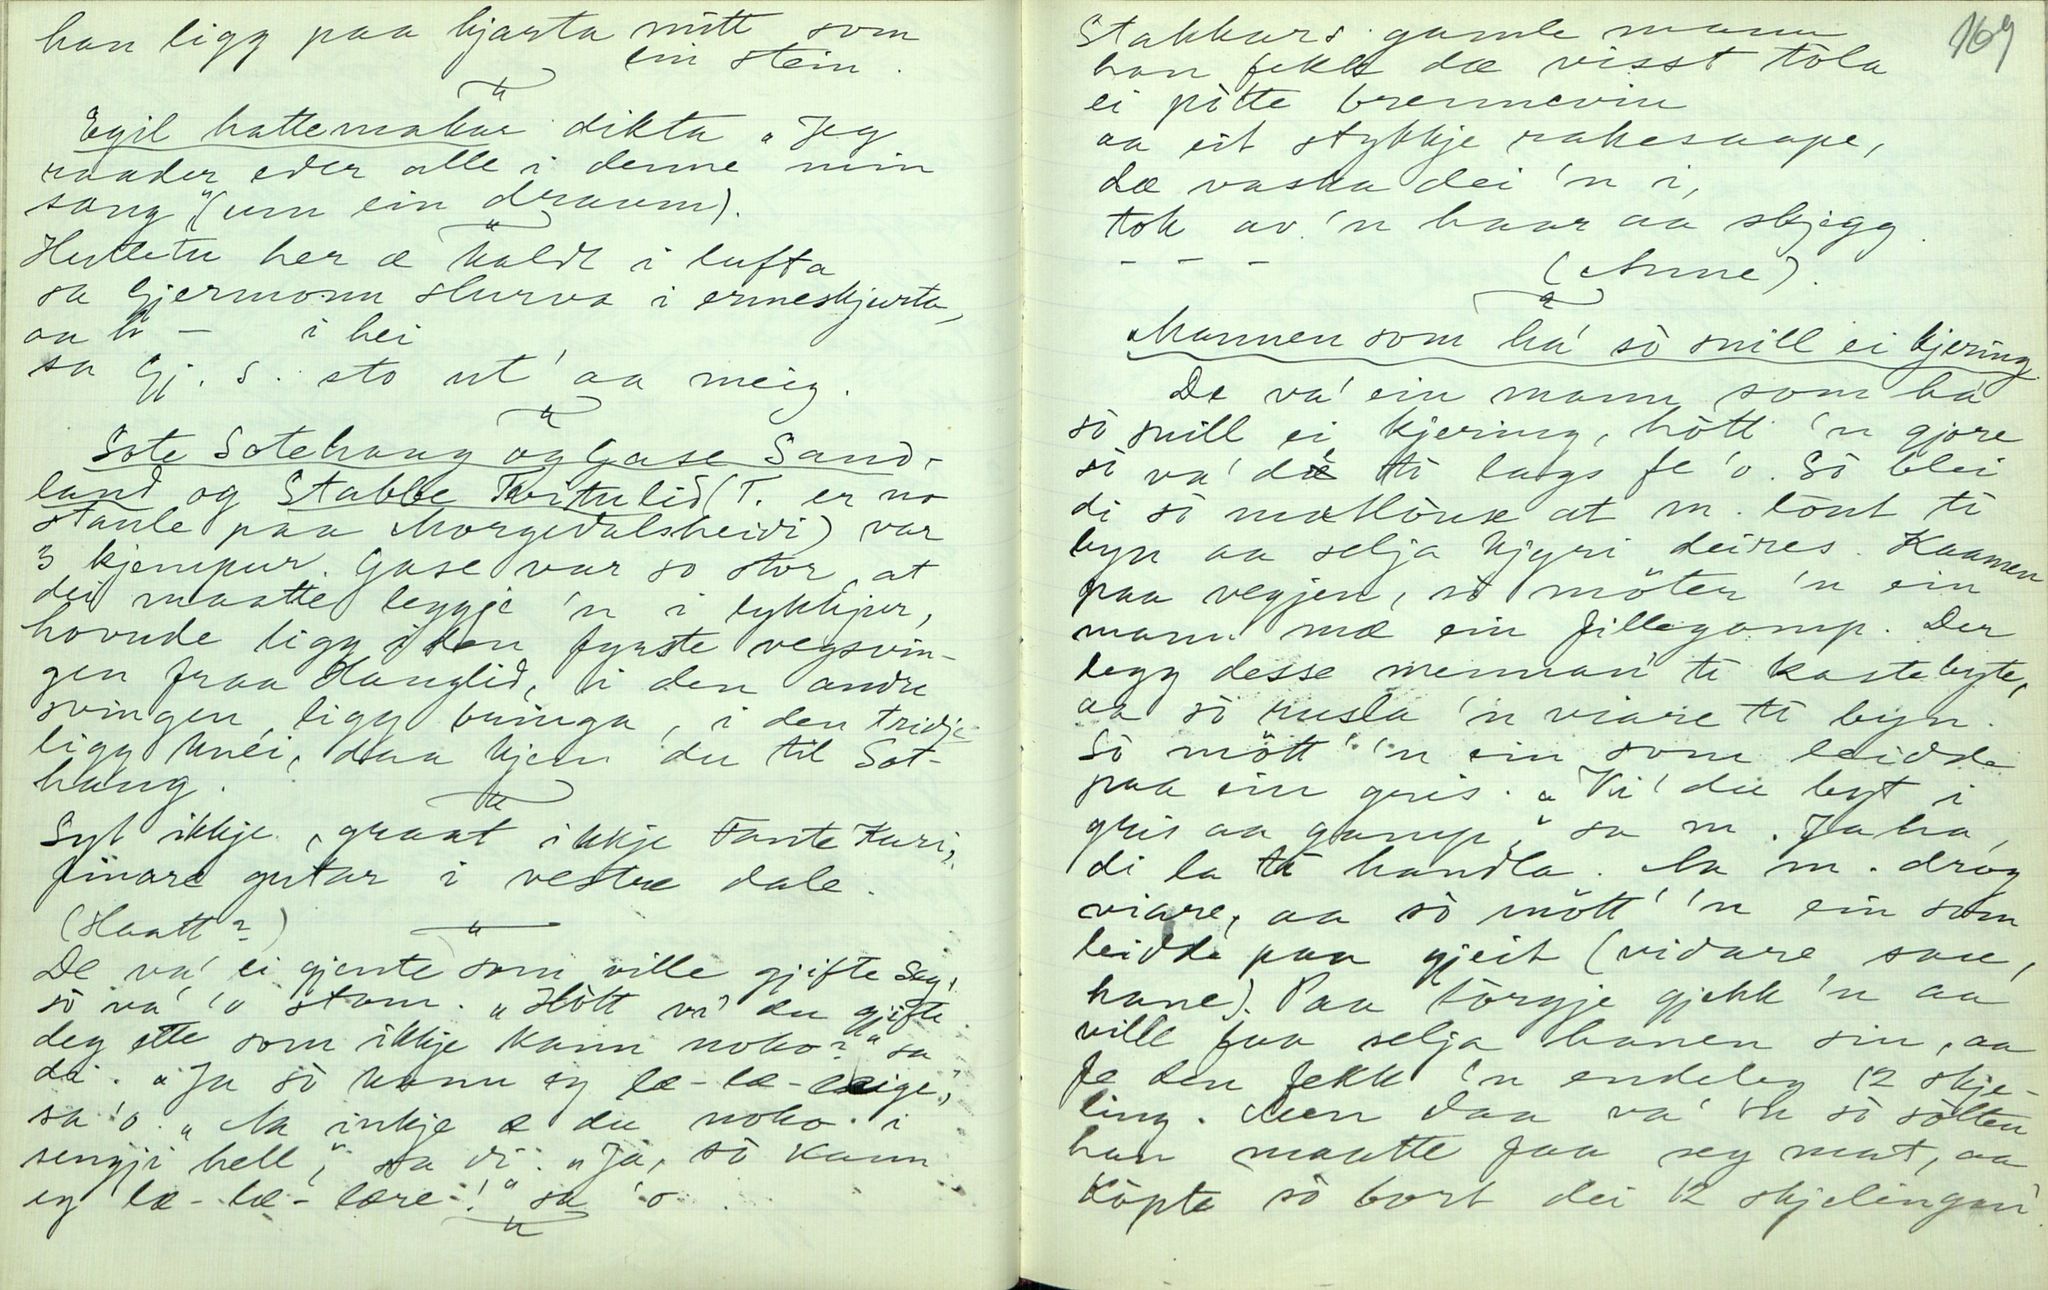 han ligg paa hjarta mitt som
ein stein.
Egil hattemakar dikta „Jeg
raader eder alle i denne min
sang" (um ein draum).
Huttetu her æ kaldt i lufta
sa Gjermonn Slurva i ermeskjurta,
aa h — i hei
sa Gj. S. sto ut' aa meig.
Sote Sotehaug og Gase Sand-
land og Stabbe Tvitulid (T. er no
staule paa Morgedalsheidi) var
3 kjempur. Gase var so stor, at
dei maatte leggje 'n i lykkjur,
hovude ligg i den fyrste vegsvin-
gen fraa Hauglid, i den andre
svingen ligg bringa, i den tridje
ligg knei, daa kjem du til Sot-
haug.
Syt ikkje, graat ikkje Tante Kari,
fiinare gutar i vestre dale.
(Haatt?)
De va' ei gjente som ville gjifte seg,
sò va' 'o stam. „Hòtt vi' du gjifte
deg ette som ikkje kann noko?" sa
dei. „Ja sò kann eg læ-læ-læige,"
sa 'o. „Aa inkje æ du noko i
sengji hell", sa di. „Ja, sò kann
eg læ-læ-lære!" sa 'o.
169
Stakkars gamle mann
han fekk dæ visst tòla
ei pòtte brennevin
aa eit stykkje rakesaape,
dæ vaska dei 'n i,
tok av 'n haar aa skjegg.
– – –
(Anne).
Mannen som ha' sò snill ei kjering.
De va' ein mann som ha'
sò snill ei kjering, hòtt 'n gjore
sò va' dæ ti lags fe 'o. Sò blei
di sò matlòuse at m. lòut ti
byn aa selja kjyri deires. Kaamen
paa vegjen, sò möter 'n ein
mann mæ ein fillegamp. Der
legg desse mennan' ti kastebyte,
aa sò rusla 'n viare ti byn.
Sò mött' 'n ein som leidde
paa ein gris. „Vi' du byt i
gris aa gamp," sa m. Jaha,
di la ti handla. Aa m. drog
viare, aa sò mött' 'n ein som
leidde paa gjeit (vidare sau,
hane). Paa tòrgje gjekk 'n aa
ville faa selja hanen sin, aa
fe den fekk 'n endeleg 12 skje-
ling. Men daa va' 'n sò sòlten
han maatte faa seg mat, aa
kòpte sò bort dei 12 skjelingan'.